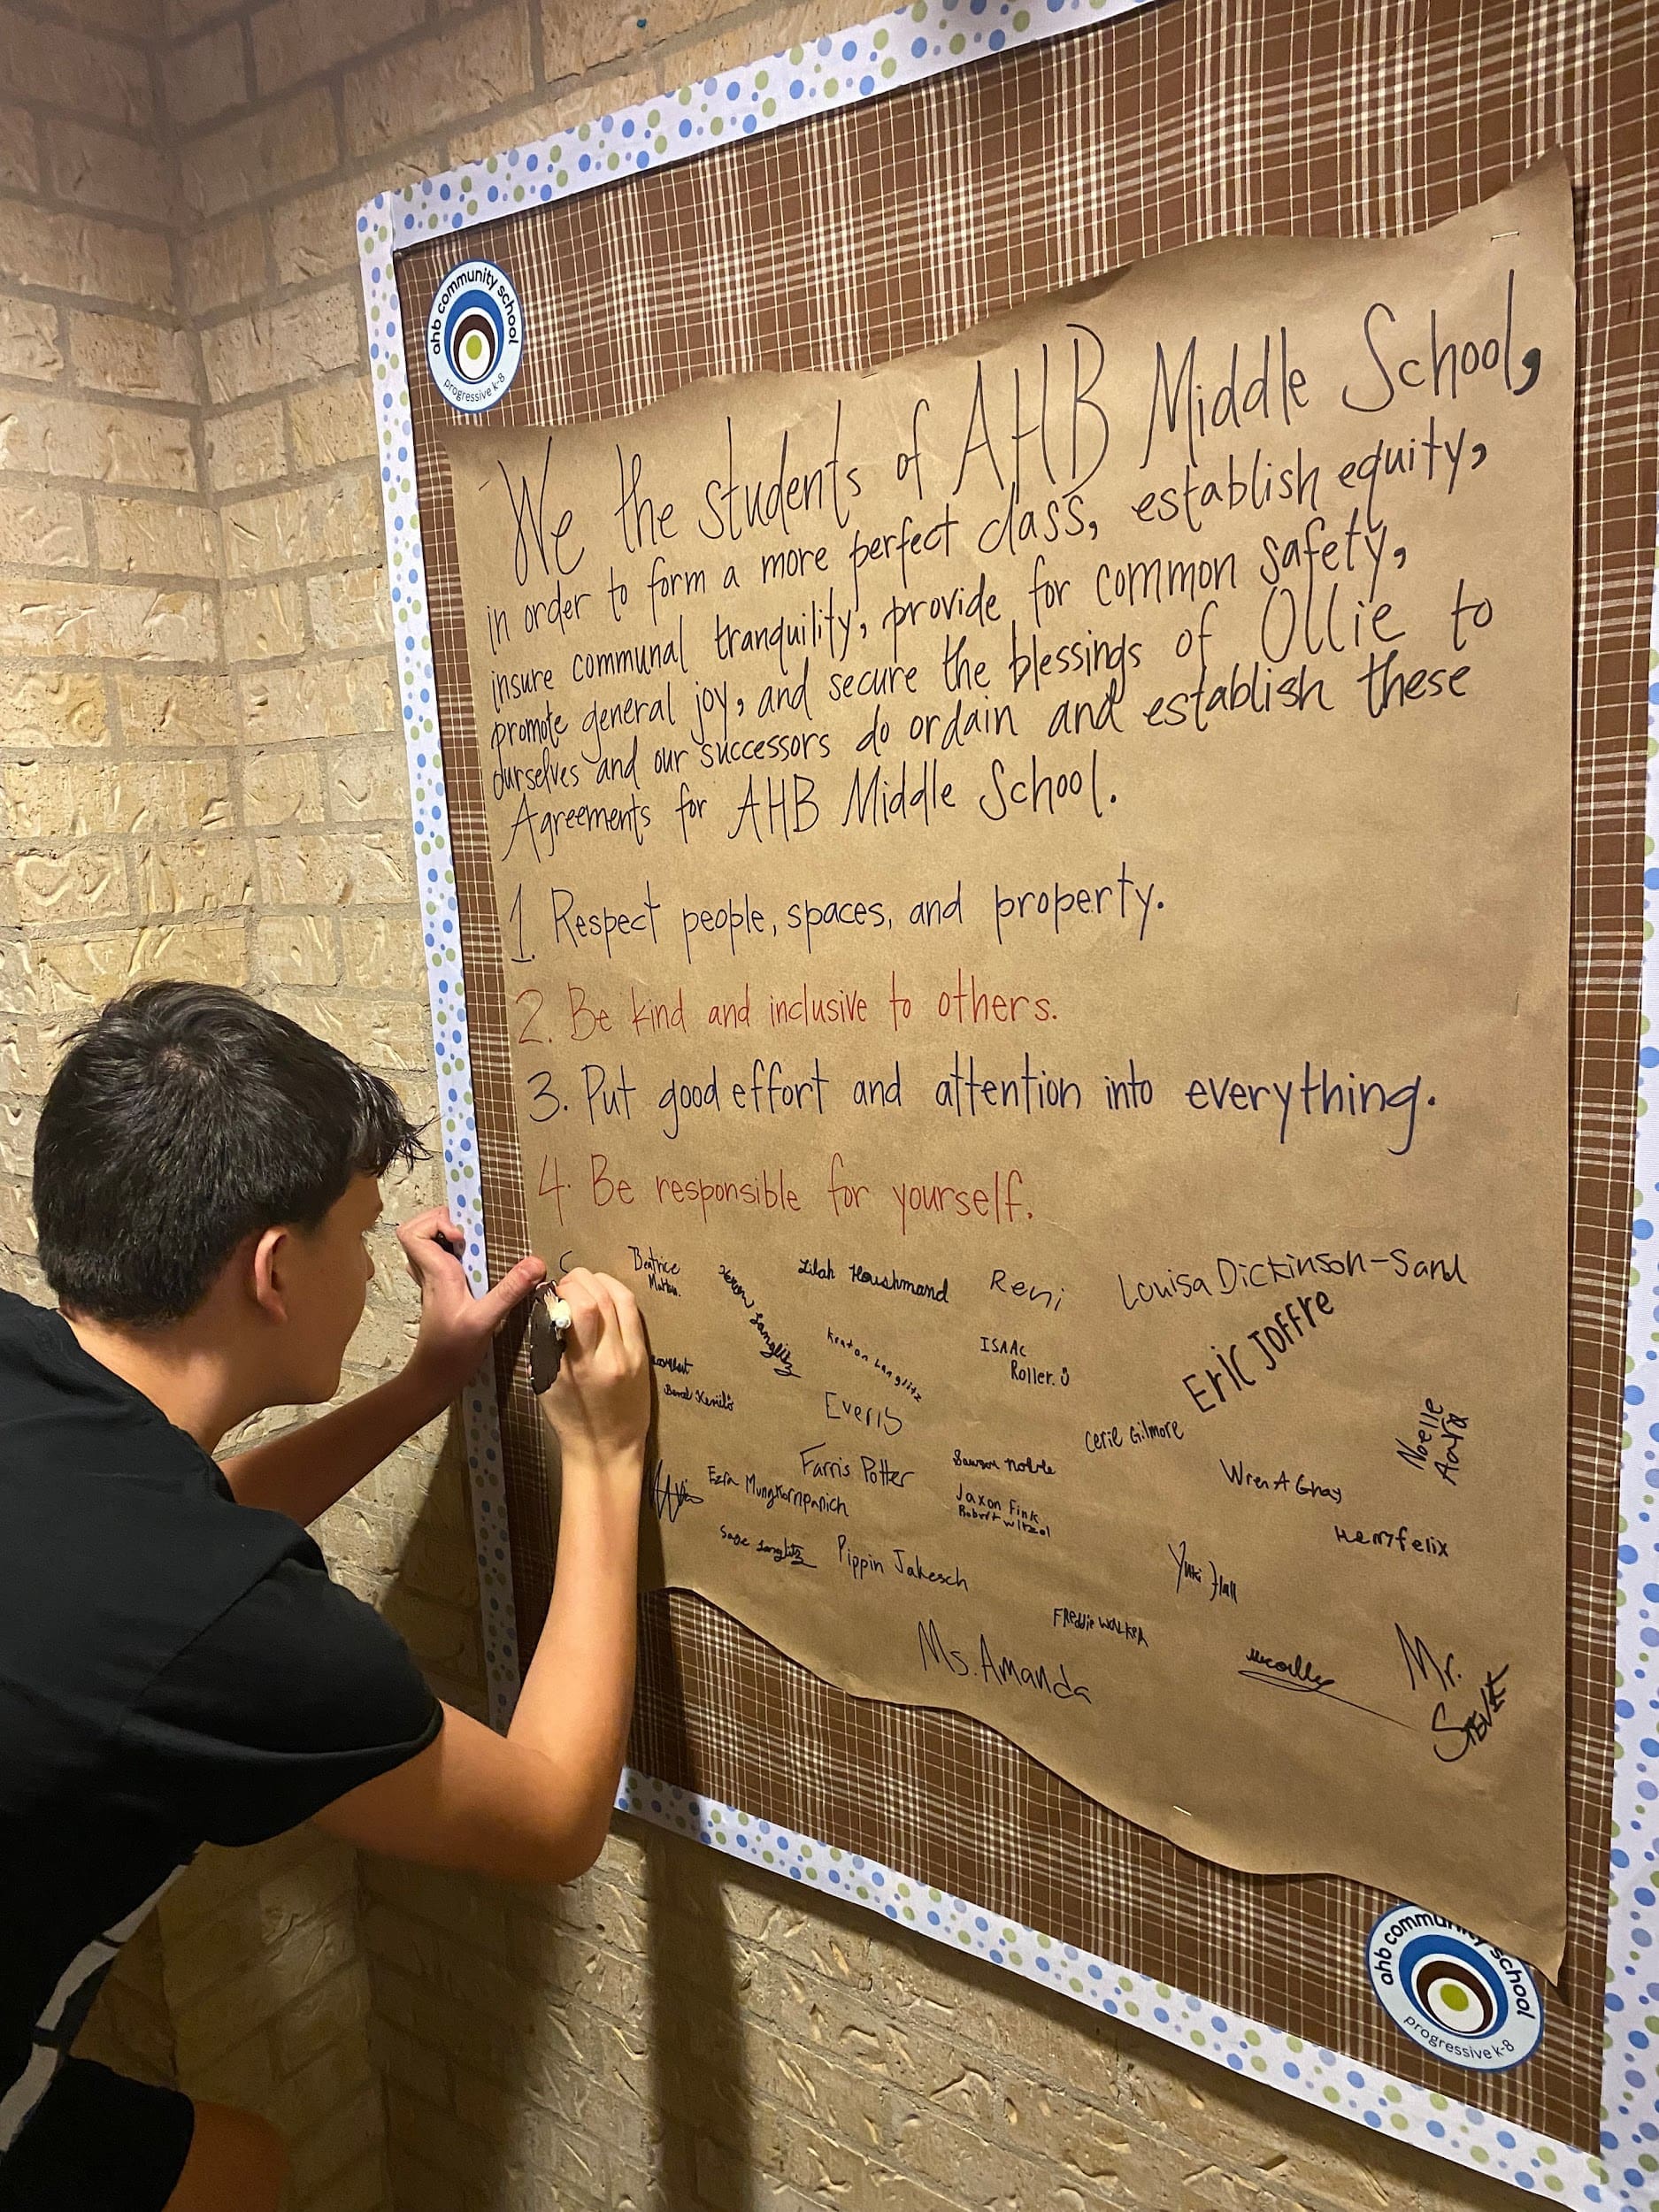 ahb community school
progressive k-8
We the students of AHB Middle School,
in order to form a more perfect class, establish equity,
insure communal tranquility, provide for common safety,
promote general joy, and secure the blessings of Ollie to
ourselves and our successors do ordain and establish these
Agreements for AHB Middle School.
1. Respect people, spaces, and property.
2. Be kind and inclusive to others.
3. Put good effort and attention into everything.
4. Be responsible for yourself.
Beatrice
Lilah Houshmand
Reni
Louisa Dickinson-Sand
Langlitz
Keaton Langlitz
ISAAC
Roller.
Eric Joffre
Everly
Cecil Gilmore
Noelle
Farris Potter
Sawson Noble
Wren A Gray
Ezra Mungkornpanich
Jaxon Fink
Robert Witzol
Henry felix
Sage Langlitz
Pippin Jakesch
Yuki Hall
Freddie Walker
Ms. Amanda
Mr.
Steve
ahb community school
progressive k-8